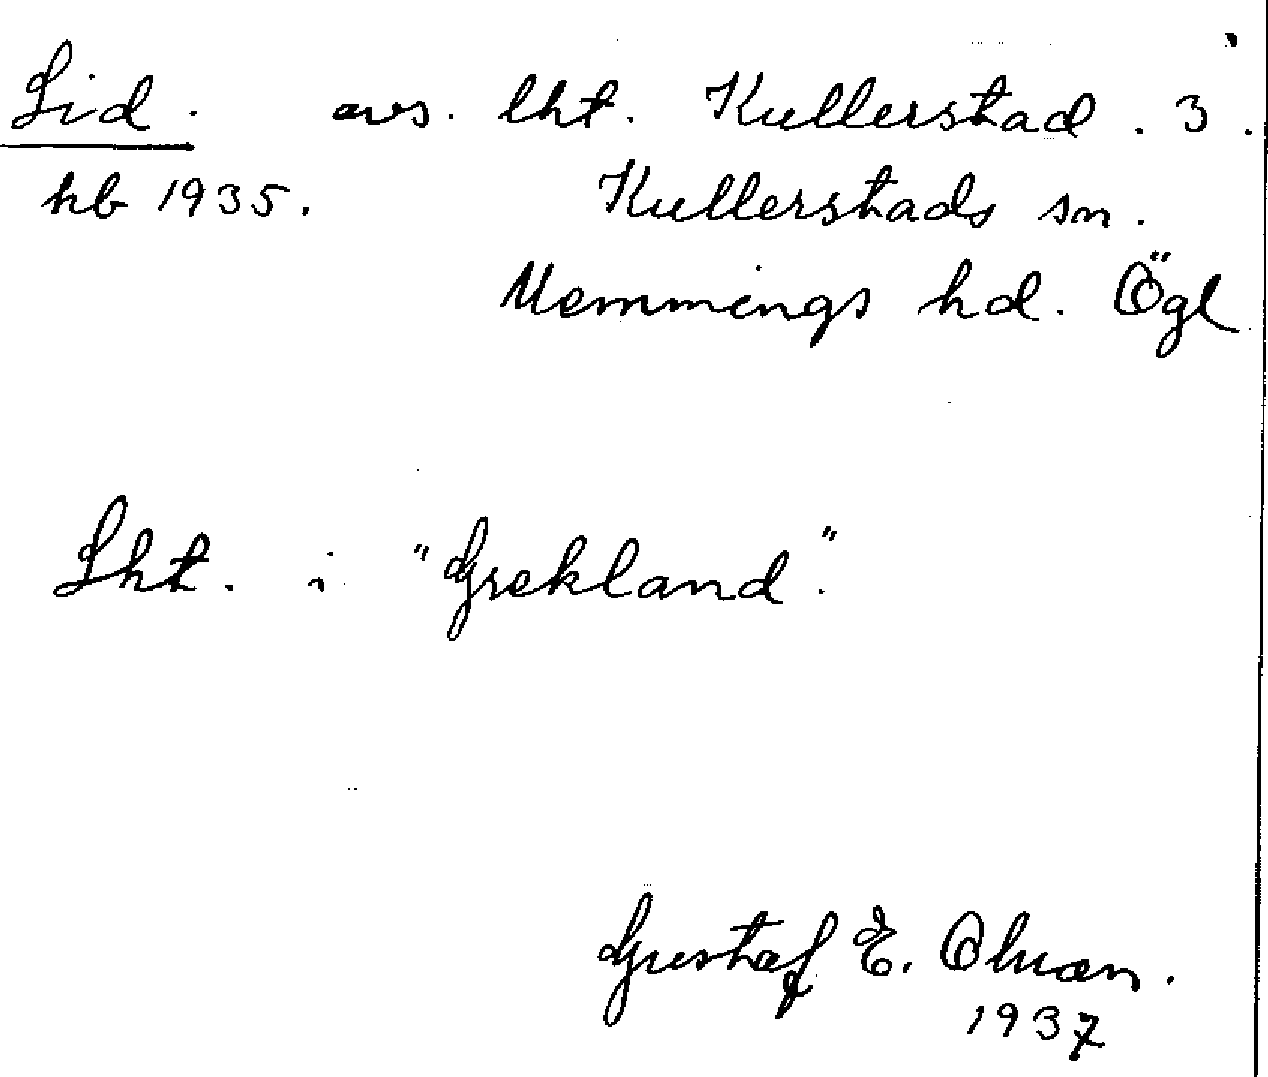 Lid. avs. lht. Kullerstad. 3.
hb 1935. Kullerstads sn.
Memmings hd. Ögl
Lht. i "Grekland."
Gustaf E. Olman.
1937